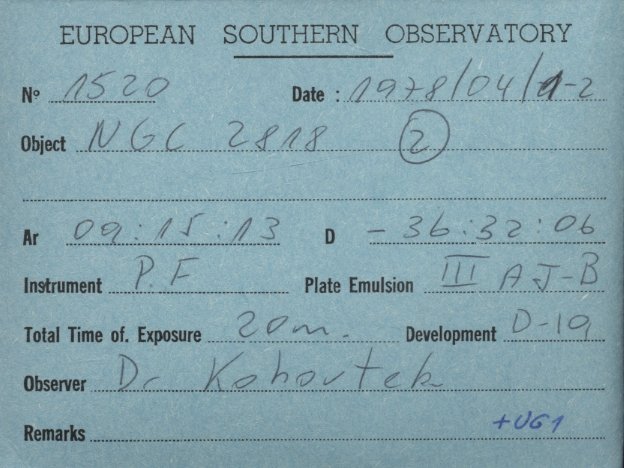 EUROPEAN SOUTHERN OBSERVATORY
Nº 1520 Date : 1978/04/1-2
Object NGC 2818 2
Ar 09:15:13 D -36:32:06
Instrument P.F Plate Emulsion III AJ-B
Total Time of. Exposure 20m. Development D-19
Observer Dr Kohoutek
Remarks +UG1